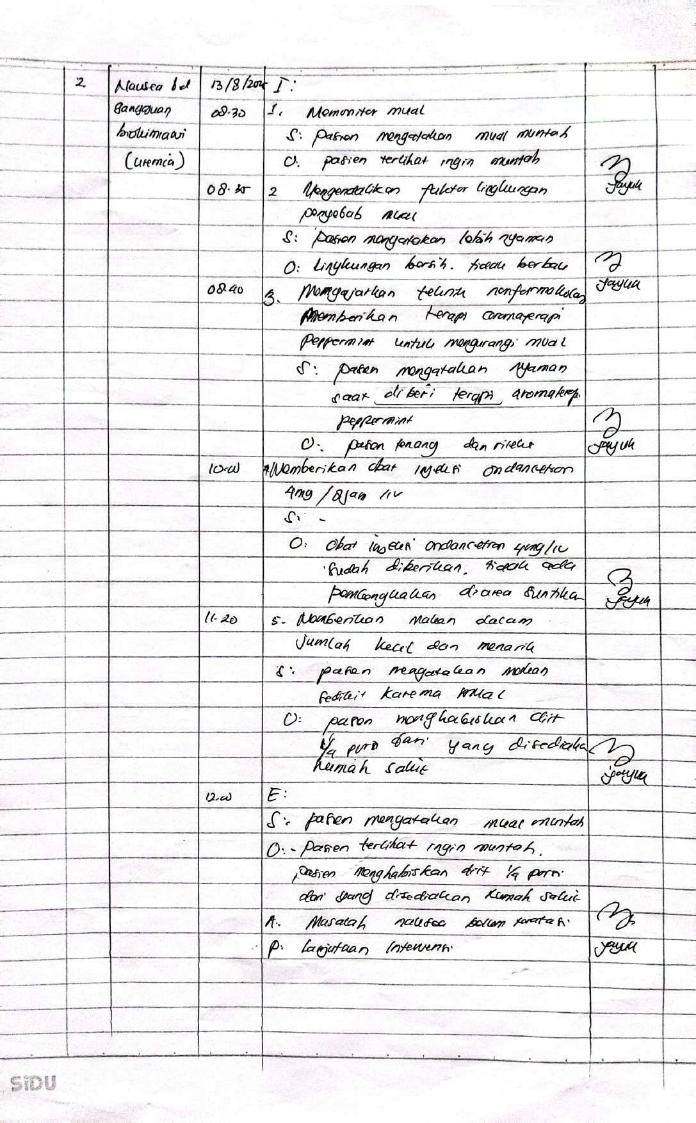 2 Nausea bd 13/8/2025 I:
Gangguan 08.30 1. Memonitor mual
biokimiawi S: pasien mengatakan mual muntah
(uremia) O. pasien terlihat ingin muntah
08.35 2 Mengendalikan faktor lingkungan
penyebab mual
S: pasien mengatakan lebih nyaman
O: Lingkungan bersih. tidak berbau
08.40 3. Mengajarkan teknik nonfarmakologi
Memberikan terapi aromaterapi
Peppermint untuk mengurangi mual
S: pasien mengatakan nyaman
saat diberi terapi aromaterapi
peppermint
O: pasien tenang dan rileks
10.00 4. Memberikan obat injeksi ondancetron
4mg / 8jam /iv
S: -
O: Obat injeksi ondancetron 4mg/iv
sudah diberikan, tidak ada
pembengkakan diarea suntikan
11.20 5. Memberikan makan dalam
jumlah kecil dan menarik
S: pasien mengatakan makan
sedikit karena mual
O: pasien menghabiskan diit
1/4 porsi dari yang disediakan
Rumah sakit
12.00 E:
S: pasien mengatakan mual muntah
O: - Pasien terlihat ingin muntah.
pasien menghabiskan diit 1/4 porsi
dari yang disediakan Rumah sakit
A. Masalah nausea belum teratasi
P: Lanjutkan Intervensi
SiDU